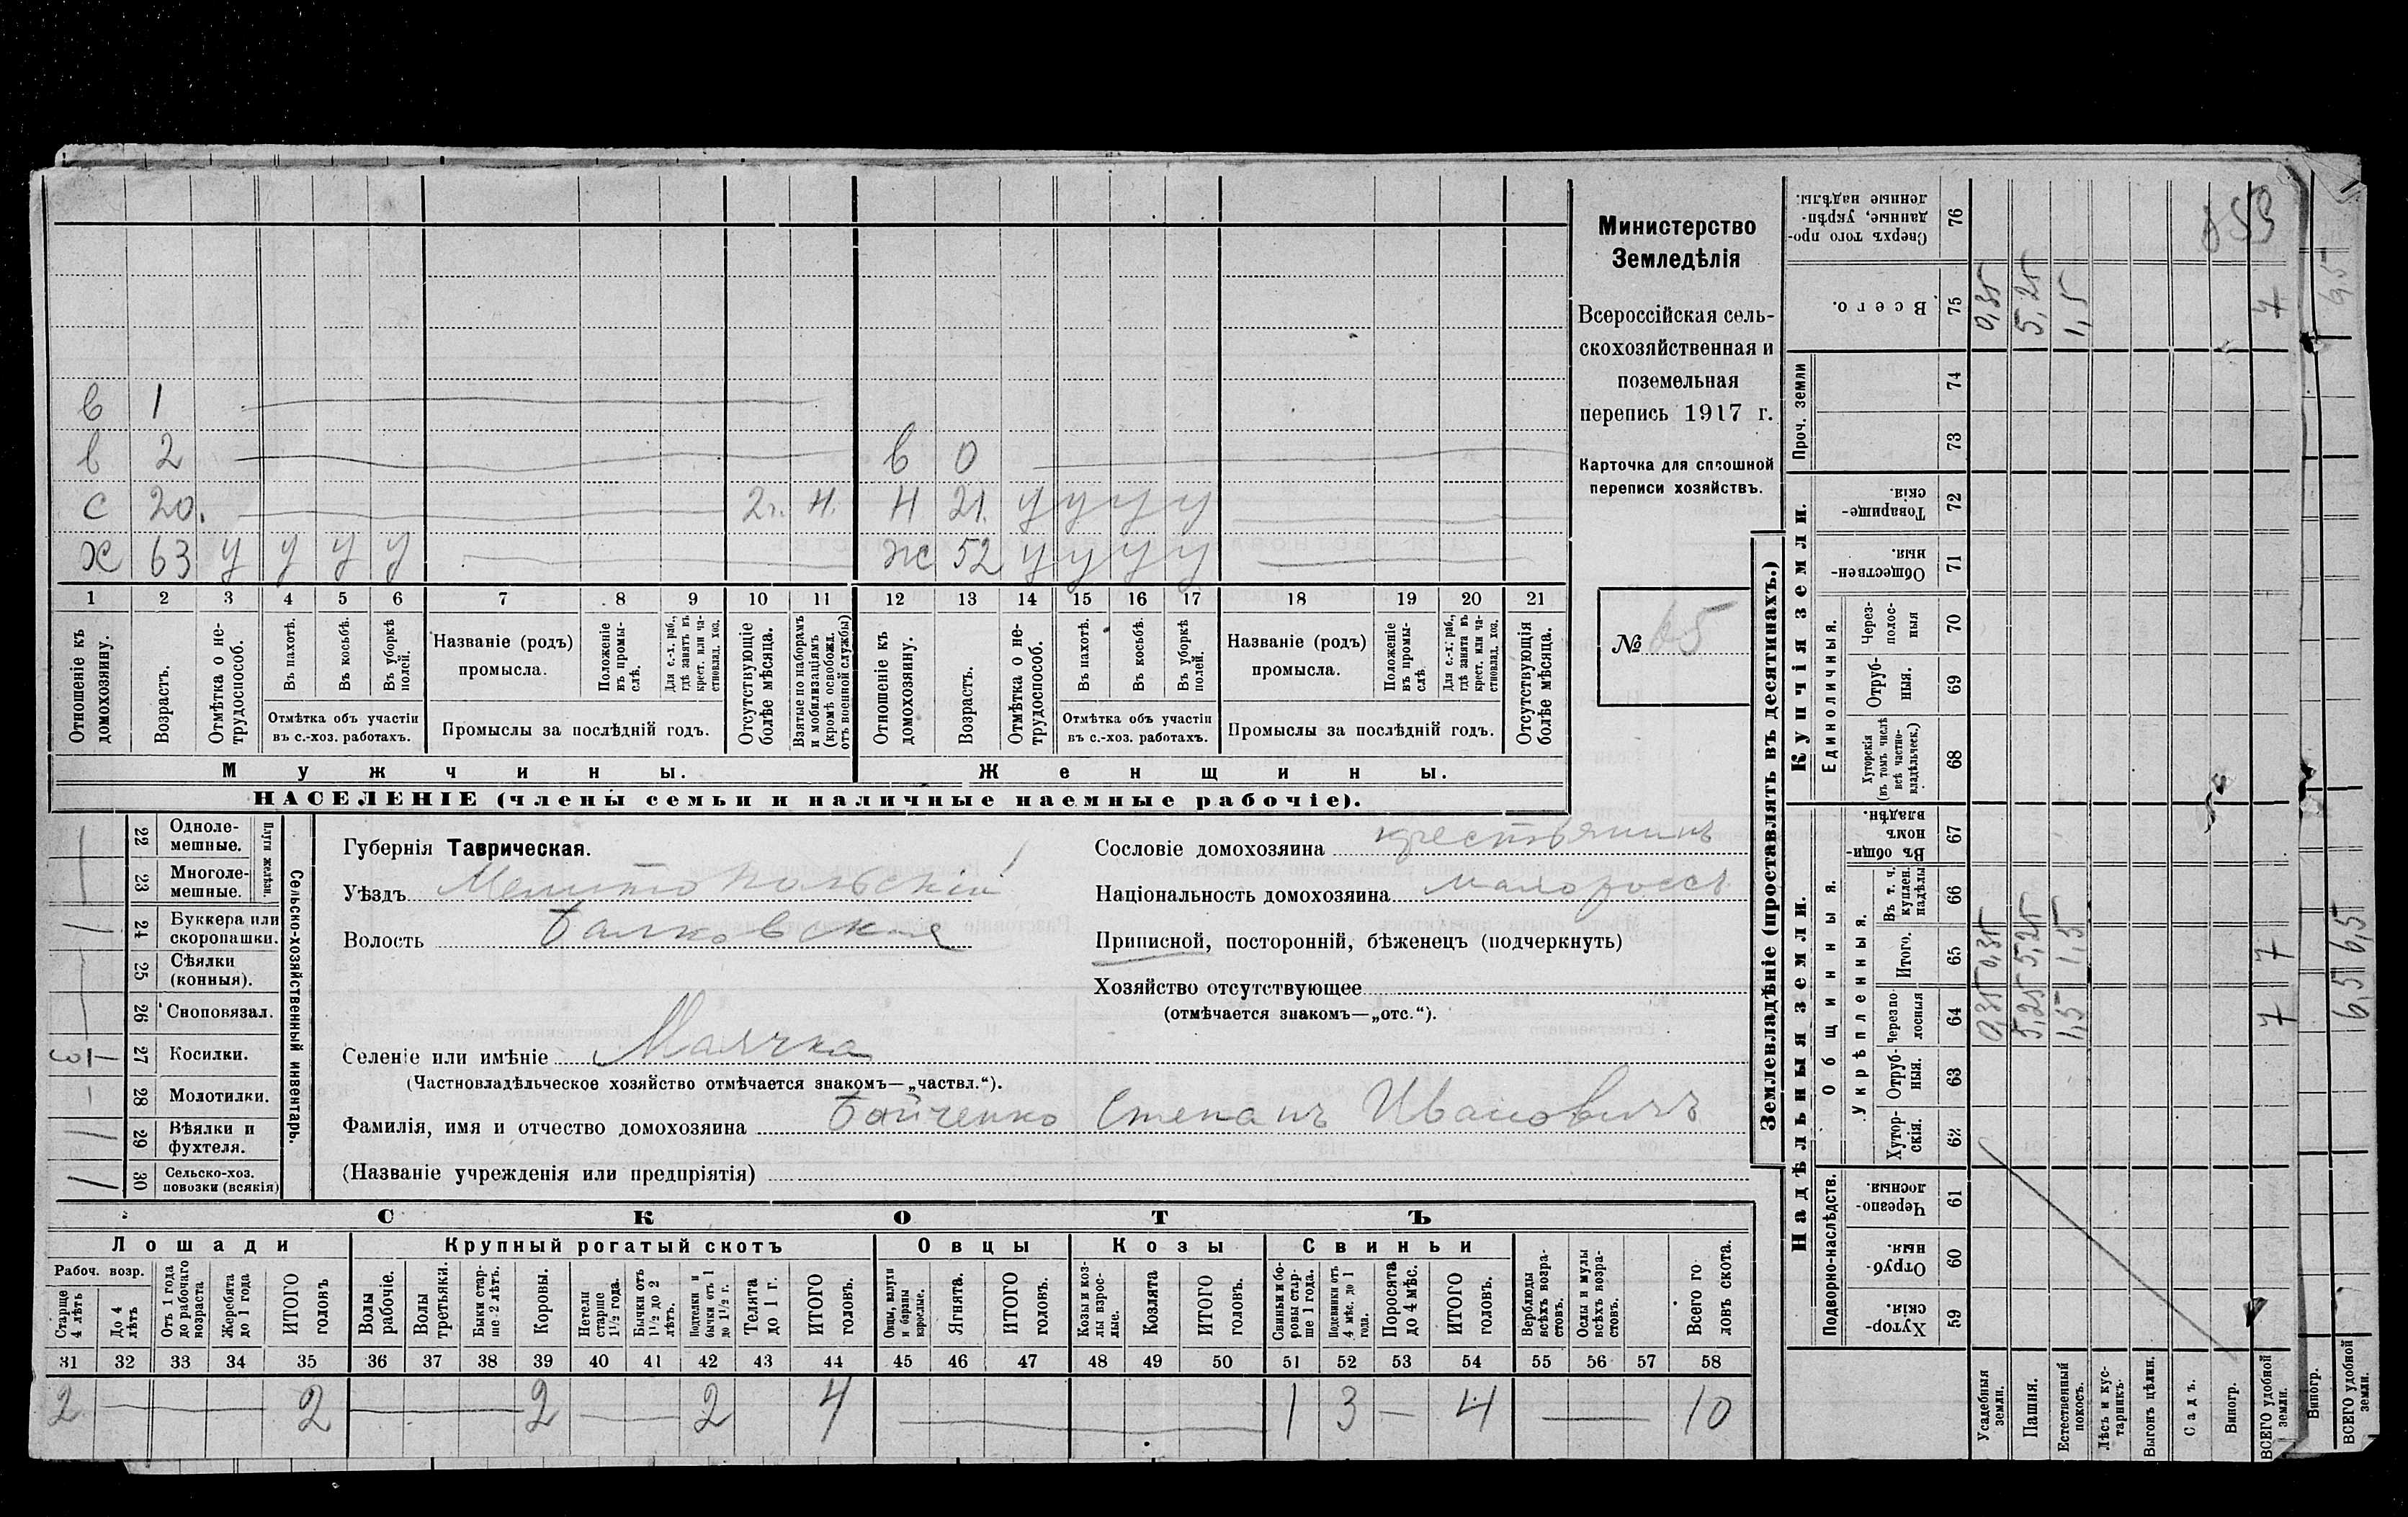 в 1
в 2 в 0
с 20. 2г. Н. Н 21. у у у у
х 63 у у у у ж 52 у у у у
1 2 3 4 5 6 7 8 9 10 11 12 13 14 15 16 17 18 19 20 21
Отношеніе къ домохозяину.
Возрастъ.
Отмѣтка о не-
трудоспособ.
Въ пахотѣ.
Въ косьбѣ.
Въ уборкѣ
полей.
Отмѣтка объ участіи
въ с.-хоз. работахъ.
Названіе (родъ)
промысла.
Положеніе
въ промы-
слѣ.
Для с.-х. раб.,
гдѣ занятъ въ
крест. или ча-
стновлад. хоз.
Промыслы за послѣдній годъ.
Отсутствующіе
болѣе мѣсяца.
Взятые по наборамъ
и мобилизаціямъ
(кромѣ освобожд.
отъ военной службы)
Отношеніе къ
домохозяину.
Возрастъ.
Отмѣтка о не-
трудоспособ.
Въ пахотѣ.
Въ косьбѣ.
Въ уборкѣ
полей.
Отмѣтка объ участіи
въ с.-хоз. работахъ.
Названіе (родъ)
промысла.
Положеніе
въ промы-
слѣ
Для с.-х. раб.,
гдѣ занята въ
крест. или ча-
стновлад. хоз.
Промыслы за послѣдній годъ.
Отсутствующія
болѣе мѣсяца.
Мужчины.
Женщины.
НАСЕЛЕНІЕ (члены семьи и наличные наемные рабочіе).
Министерство
Земледѣлія
Всероссійская сель-
скохозяйственная и
поземельная
перепись 1917 г.
Карточка для сплошной
переписи хозяйствъ.
№ 65
Сельско-хозяйственный инвентарь.
Плуги желѣзн.
22 Одноле-
мешные.
23 Многоле-
мешные.
24 Буккера или
скоропашки.
25 Сѣялки
(конныя).
26 Сноповязал.
27 Косилки.
28 Молотилки.
29 Вѣялки и
фухтеля.
30 Сельско-хоз.
повозки (всякія)
Губернія Таврическая.
Уѣздъ Мелитопольскій
Волость Балковская
Селеніе или имѣніе Маячка
(Частновладѣльческое хозяйство отмѣчается знакомъ—„частвл.“).
Фамилія, имя и отчество домохозяина Бойченко Степанъ Ивановичъ
(Названіе учрежденія или предпріятія)
Сословіе домохозяина крестьянинъ
Національность домохозяина малороссъ
Приписной, посторонній, бѣженецъ (подчеркнуть)
Хозяйство отсутствующее
(отмѣчается знакомъ—„отс.“).
СКОТЪ
Лошади
Рабоч. возр.
Старше
4 лѣтъ
До 4
лѣтъ
Отъ 1 года
до рабочаго
возраста
Жеребята
до 1 года
ИТОГО
головъ
Крупный рогатый скотъ
Волы
рабочіе.
Волы
третьяки.
Быки стар-
ше 2 лѣтъ.
Коровы.
Нетели
старше
1½ года.
Бычки отъ
1½ до 2
лѣтъ.
Подтелки и
бычки отъ 1
до 1½ г.
Телята
до 1 г.
ИТОГО
головъ.
Овцы
Овцы, валухи
и бараны
взрослые.
Ягнята.
ИТОГО
головъ.
Козы
Козы и коз-
лы взрос-
лые.
Козлята
ИТОГО
головъ.
Свиньи
Свиньи и бо-
ровы стар-
ше 1 года.
Подсвинки отъ
4 мѣс. до 1
года.
Поросята
до 4 мѣс.
ИТОГО
головъ.
Верблюды
всѣхъ возра-
стовъ.
Ослы и мулы
всѣхъ возра-
стовъ.
Всего го-
ловъ скота.
31 32 33 34 35 36 37 38 39 40 41 42 43 44 45 46 47 48 49 50 51 52 53 54 55 56 57 58
2 2 2 2 4 1 3 4 10
Землевладѣніе (проставлять въ десятинахъ.)
Надѣльныя земли.
Купчія земли.
Подворно-наслѣдств.
Общинныя.
Укрѣпленныя.
Единоличныя.
Проч. земли
Сверхъ того про-
данные, укрѣп-
ленные надѣлы.
76
Всего.
75
74
73
Товарище-
скія.
72
Обществен-
ныя.
71
Через-
полос-
ныя
70
Отруб-
ныя.
69
Хуторскія
(въ томъ числѣ
всѣ частно-
владѣльческ.)
68
Въ общин-
номъ
владѣн.
67
Въ т. ч.
куплен.
надѣлы
66
Итого.
65
Черезпо
лосныя
64
Отруб-
ныя.
63
Хутор-
скія.
62
Черезпо-
лосныя.
61
Отруб-
ныя.
60
Хутор-
скія.
59
Усадебныя
земли.
0,25 0,25 0,25
Пашня.
5,25 5,25 5,25
Естественный
покосъ.
1,5 1,5 1,5
Лѣсъ и кус-
тарникъ.
Выгонъ цѣлин.
Садъ.
Виногр.
ВСЕГО удобной
земли.
7 7 7
Виногр.
ВСЕГО удобной
земли.
6,5 6,5 6,5